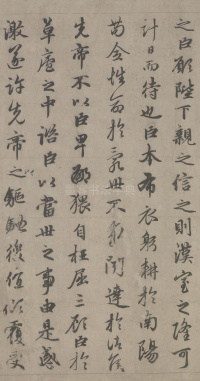 之臣願陛下親之信之則漢室之隆可
計日而待也臣本布衣躬耕於南陽
苟全性命於亂世不求聞達於諸侯
先帝不以臣卑鄙猥自枉屈三顧臣於
草廬之中諮臣以當世之事由是感
激遂許先帝以驅馳後值傾覆受